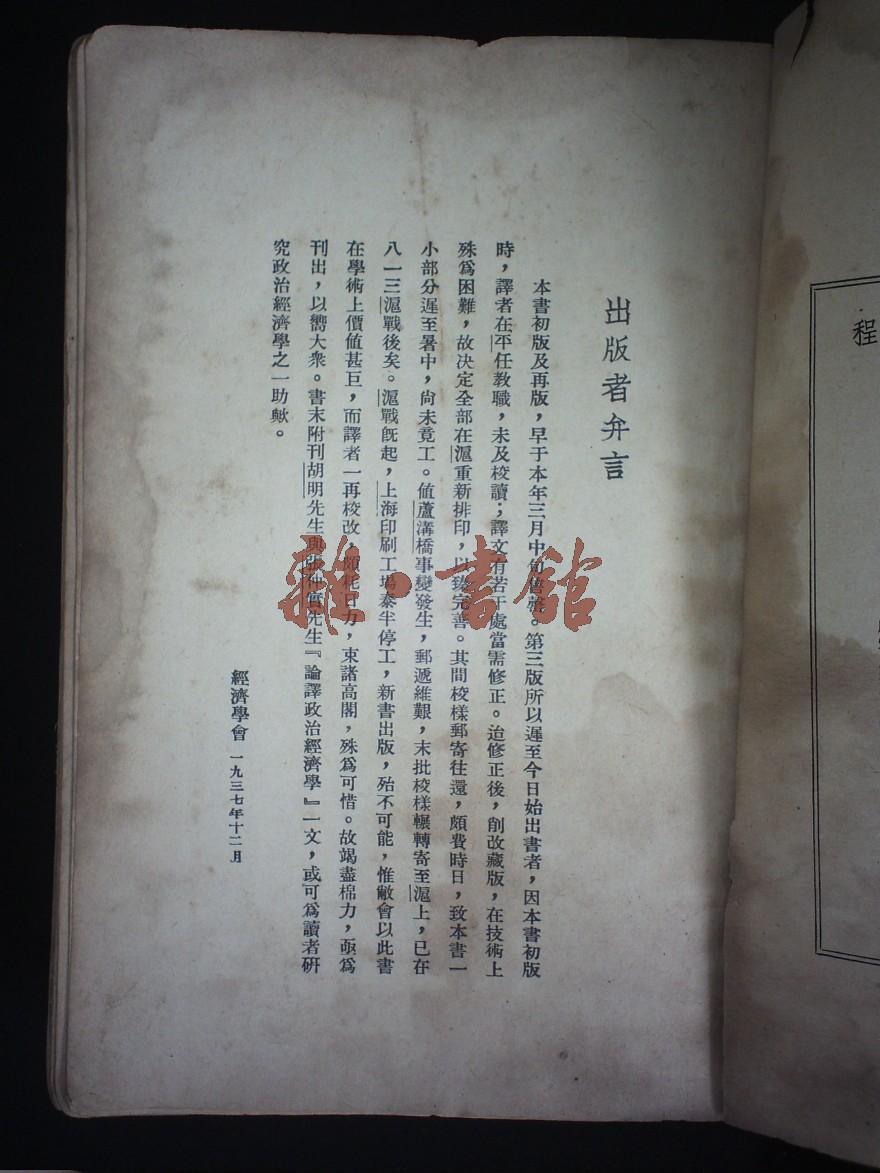 出版者弁言
本書初版及再版，早于本年三月中旬售罄。第三版所以遲至今日始出書者，因本書初版
時，譯者在平任教職，未及校讀；譯文有若干處當需修正。迨修正後，削改藏版，在技術上
殊爲困難，故决定全部在滬重新排印，以臻完善。其間校樣郵寄往還，頗費時日，致本書一
小部分遲至暑中，尙未竟工。値蘆溝橋事變發生，郵遞維艱，末批校樣輾轉寄至滬上，已在
八一三滬戰後矣。滬戰旣起，上海印刷工場泰半停工，新書出版，殆不可能，惟敝會以此書
在學術上價値甚巨，而譯者一再校改，頗耗日力，束諸高閣，殊爲可惜。故竭盡棉力，亟爲
刊出，以嚮大衆。書末附刊胡明先生與張仲實先生『論譯政治經濟學』一文，或可爲讀者硏
究政治經濟學之一助歟。
經濟學會 一九三七年十二月
程
雜·書館